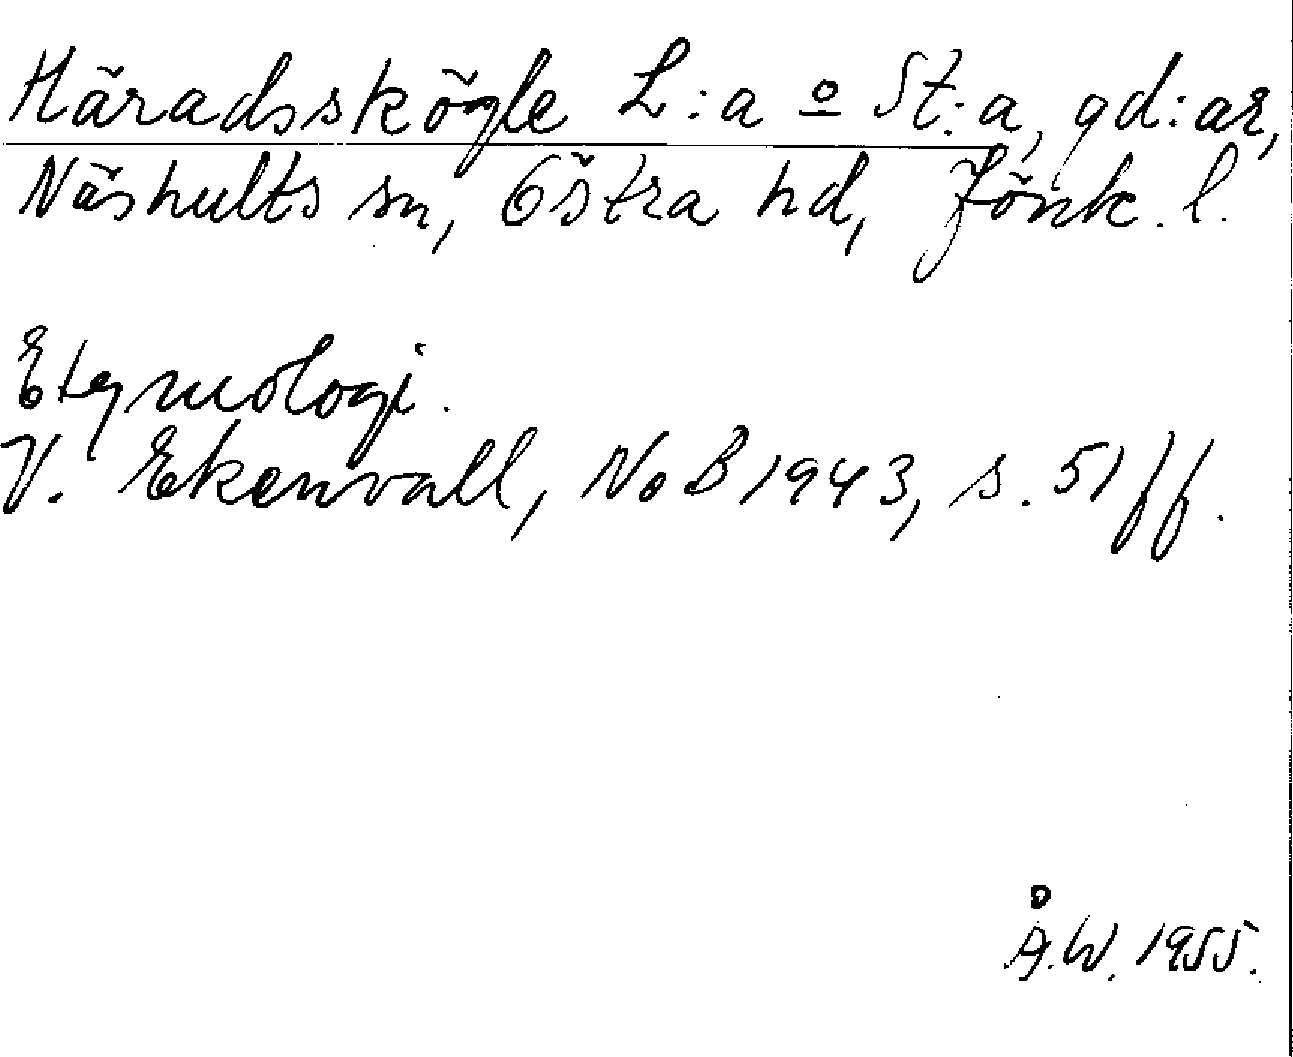 Häradsskögle L:a o St:a, gd:ar,
Näshults sn, Östra hd, Jönk. l.
Etymologi.
V. Ekenvall, NoB 1943, s. 51 ff.
Å.W. 1955.